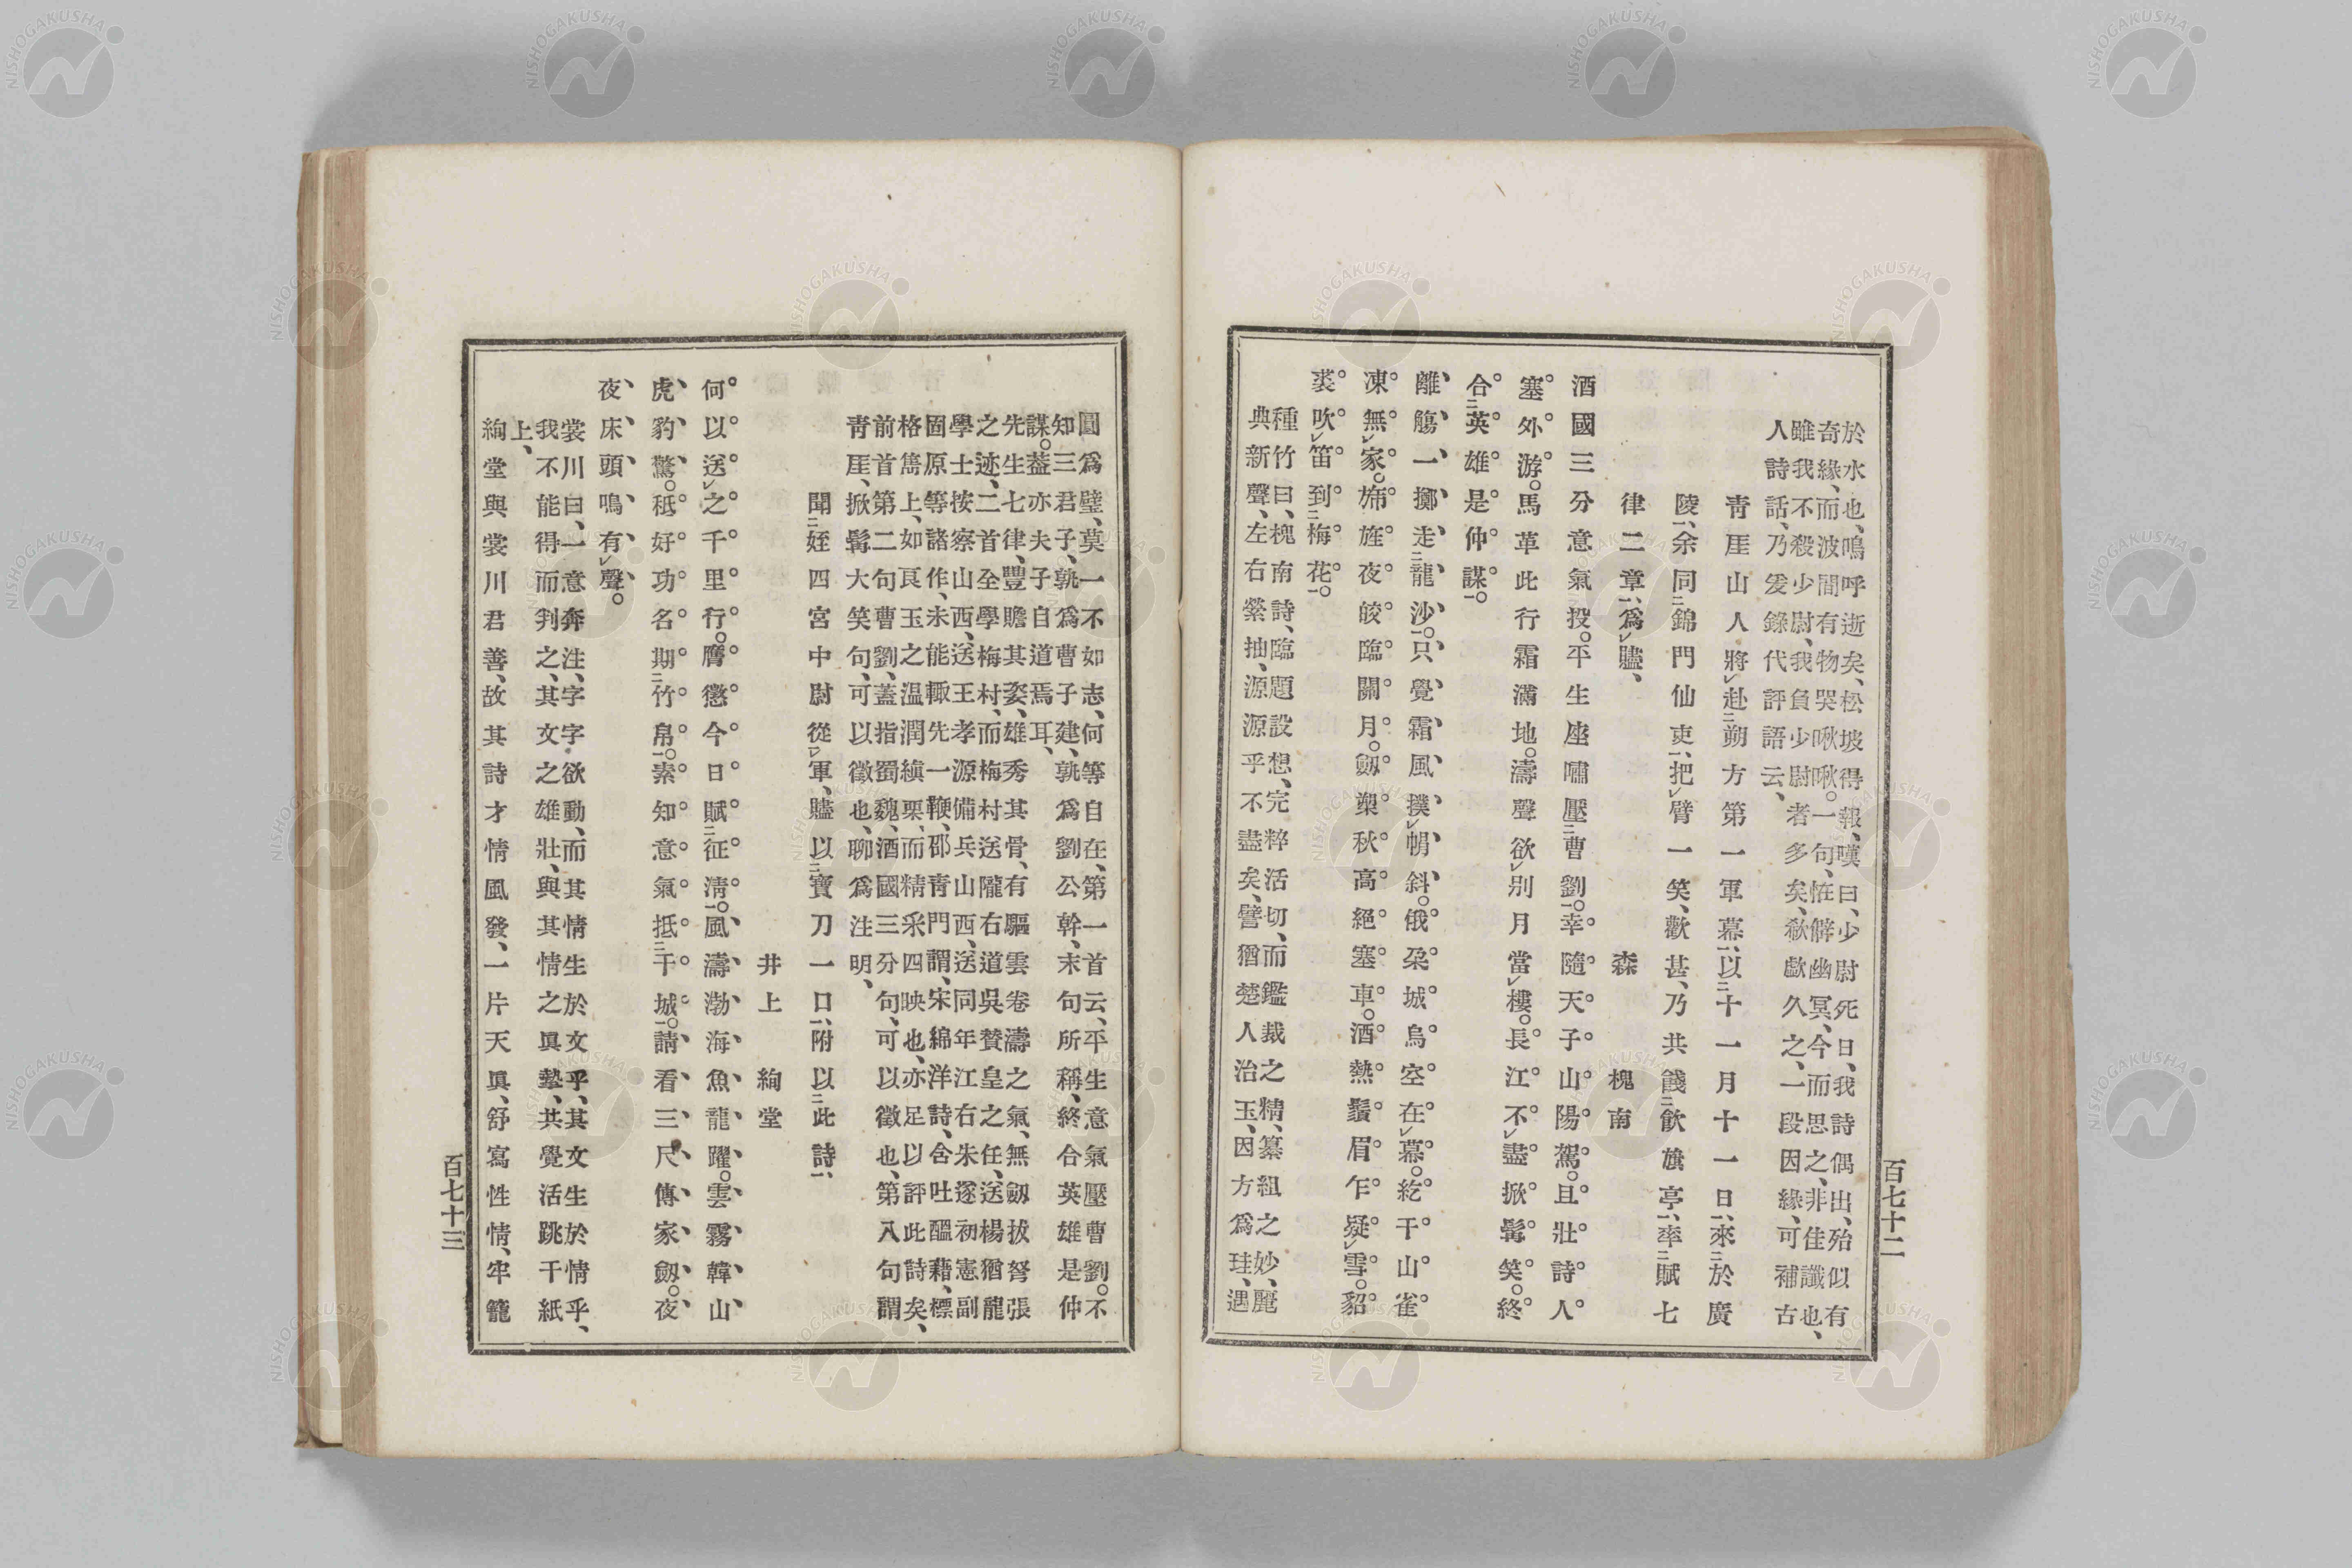 於水也、鳴呼逝矣、松坡得報、嘆曰、少尉死日、我詩偶出、殆似有
奇緣、而波間有物哭啾啾。一句、怪僻幽冥、今而思之、非佳讖也、
雖我不殺少尉、我負少尉者多矣、欷歔久之、一段因緣、可補古
人詩話、乃爰錄代評語云、
青厓山人將レ赴二朔方第一軍幕一、以二十一月十一日一、來二於廣
陵一、余同二錦門仙吏一、把レ臂一笑、歡甚、乃共餞二飮旗亭一、率二賦七
律二章一、爲レ贐、 森 槐南
酒國三分意氣投。平生座嘯壓二曹劉一。幸隨天子山陽駕。且壯詩人
塞外游。馬革此行霜滿地。濤聲欲レ別月當レ樓。長江不レ盡掀髯笑。終
合二英雄是仲謀一。
離觴一擲走二龍沙一。只覺霜風撲レ帽斜。俄朶城烏空在レ幕。紇干山雀
凍無レ家。旆旌夜皎臨關月。劔槊秋高絕塞車。酒熱鬚眉乍疑レ雪。貂
裘吹レ笛到二梅花一。
種竹曰、槐南詩、臨題設想、完粹活切、而鑑裁之精、纂組之妙、麗
典新聲、左右縈抽、源源乎不盡矣、譬猶楚人治玉、因方爲珪、遇
百七十二
圓爲璧、莫一不如志、何等自在、第一首云、平生意氣壓曹劉。不
知三君子、孰爲曹子建、孰爲劉公幹、末句所稱、終合英雄是仲
謀。葢亦夫子自道焉耳、
先生七律、豐贍其姿、雄秀其骨、有驅雲卷濤之氣、無劔拔弩張
之迹、二首全學梅村、而梅村送隴右道吳贊皇之任、送楊猶龍
學士按察山西、送王孝源備兵山西、送同年江右朱遂初憲副
固原等諸作、未能輙先一鞭、邵青門謂、宋綿洋詩、含吐醞藉、標
格雋上、如良玉之溫潤縝栗、而精采四映也、亦足以評此詩矣、
前首第二句曹劉、蓋指蜀魏、酒國三分句、可以徵也、第八句謂
靑厓、掀髯大笑句、可以徵也、聊爲注明、
聞二姪四宮中尉從レ軍、贐以二寶刀一口一、附以二此詩一、
井上 絢堂
何以送レ之千里行。膺懲今日賦二征淸一。風濤渤海魚龍躍。雲霧韓山
虎豹驚。秪好功名期二竹帛一。素知意氣抵二干城一。請看三尺傳家劔。夜
夜床頭鳴有レ聲。
裳川曰、一意奔注、字字欲動、而其情生於文乎、其文生於情乎、
我不能得而判之、其文之雄壯、與其情之眞摯、共覺活跳于紙
上、
絢堂與裳川君善、故其詩才情風發、一片天眞、舒寫性情、牢籠
百七十三